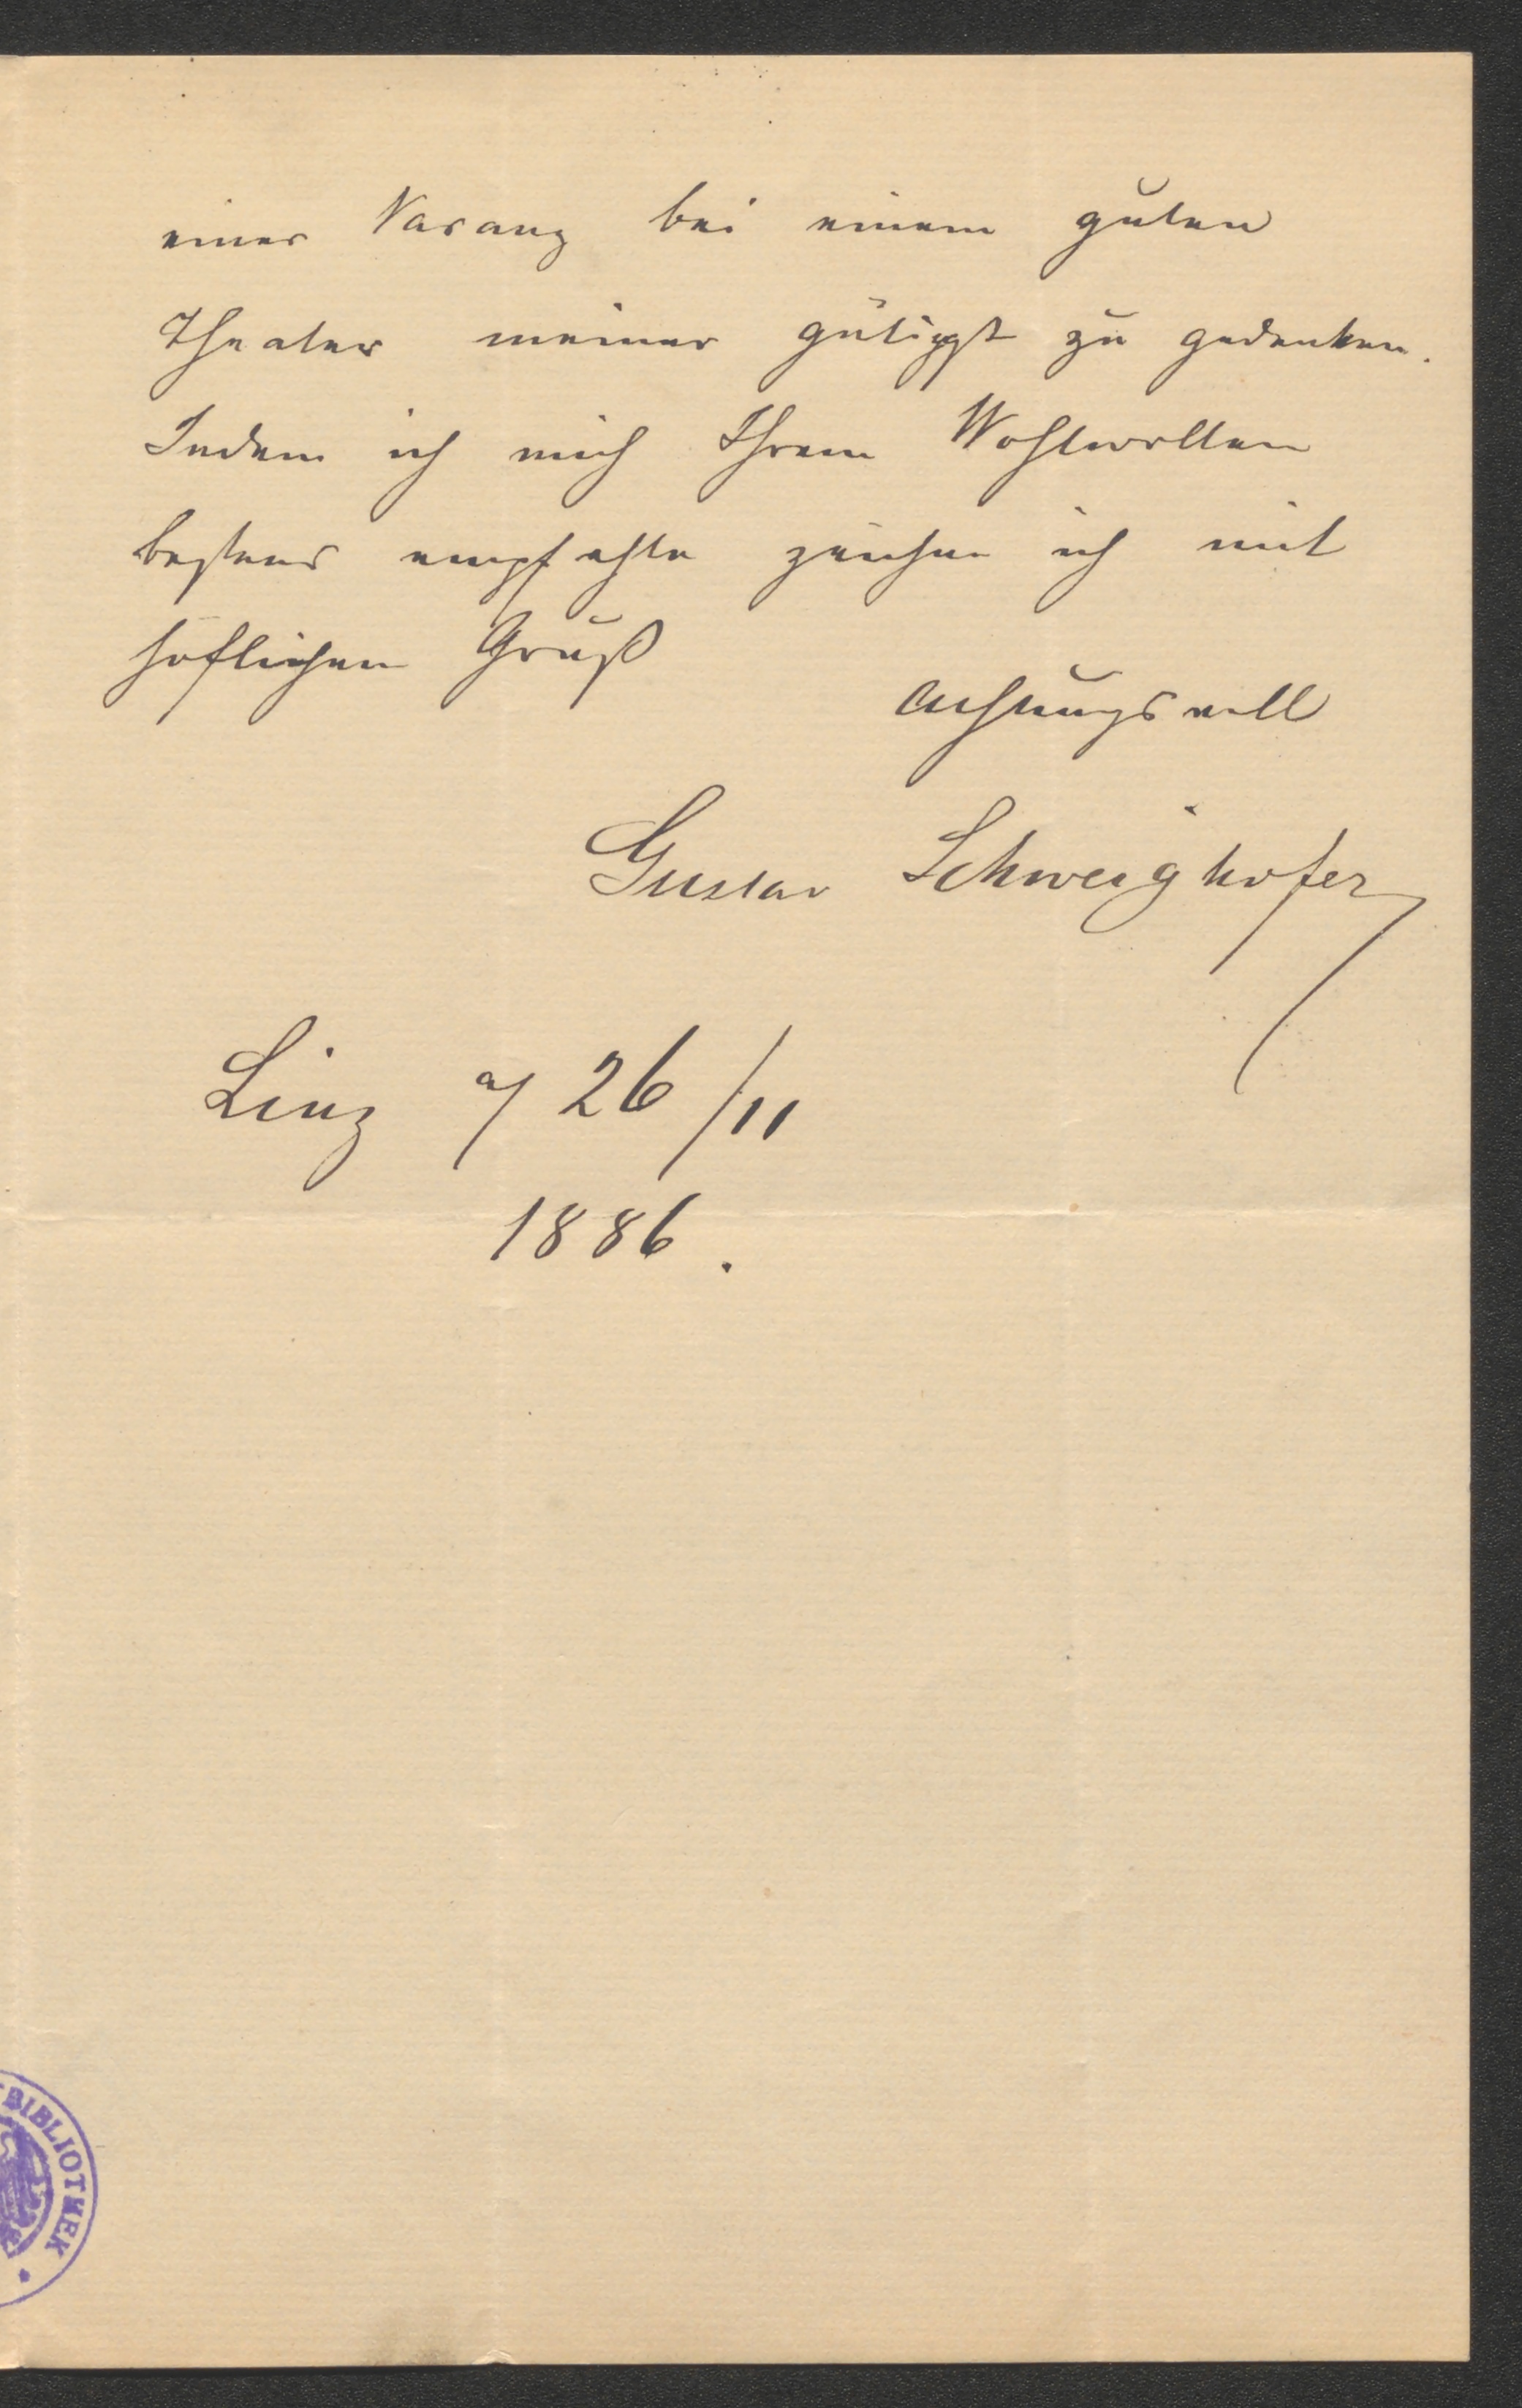 einer Vacanz bei einem guten
Theater meiner gütigst zu gedenken.
Indem ich mich Ihrem Wohlwollen
bestens empfehle zeichne ich mit
höflichem Gruß
Achtungsvoll
Gustav Schweighofer
Linz a/ 26/11
1886.
BIBLIOTHEK